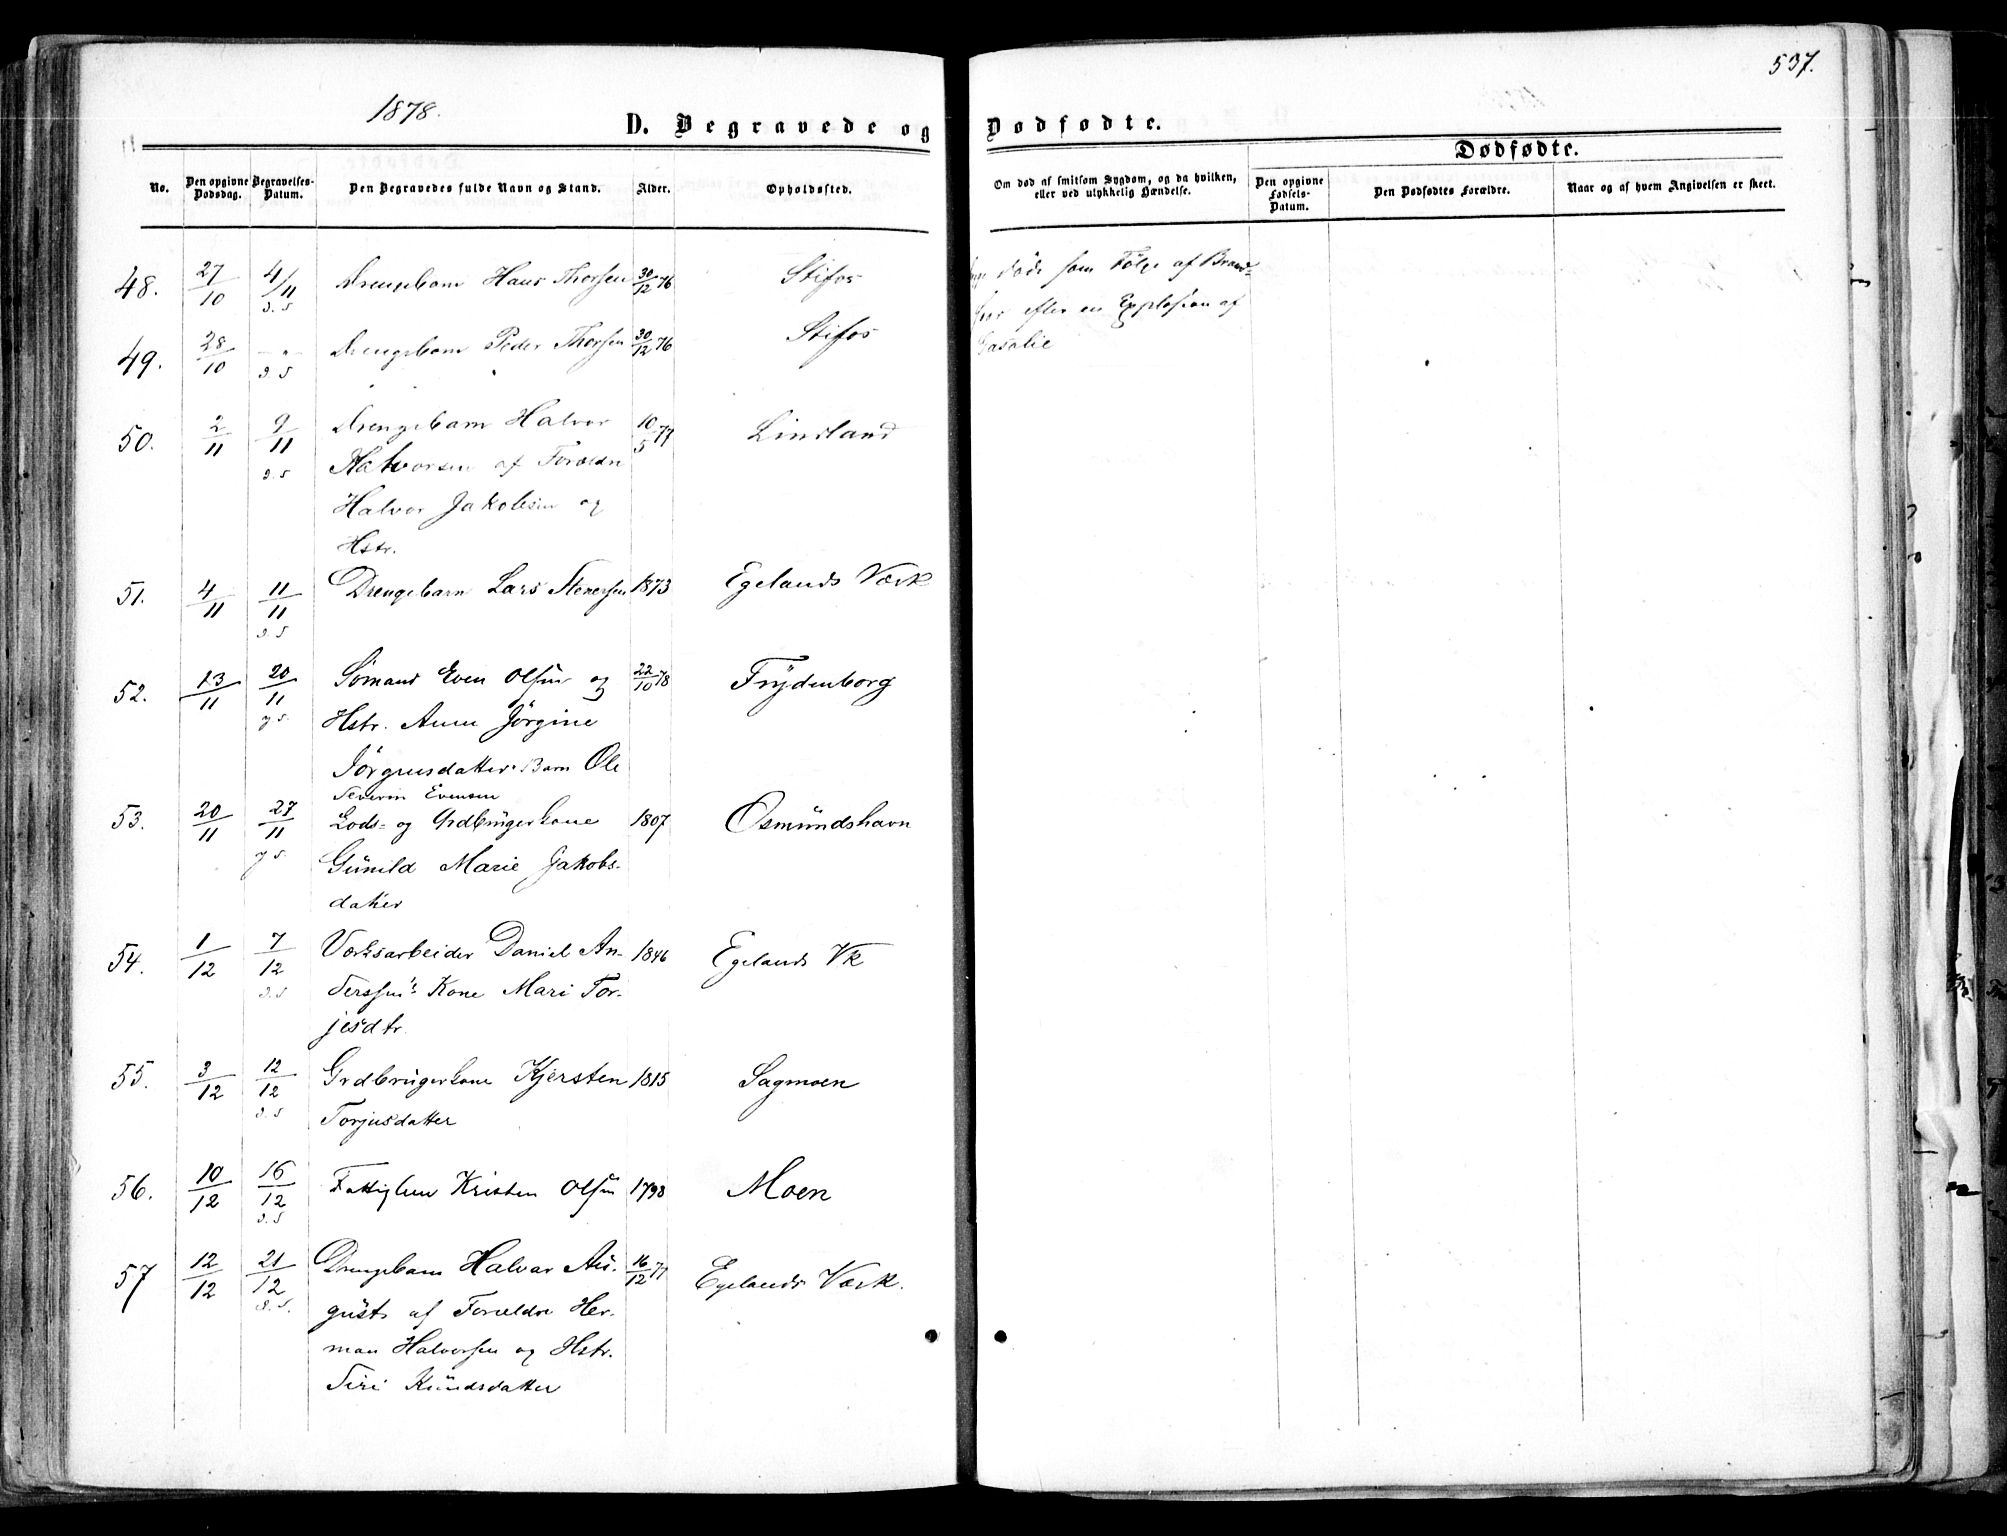 537.
1878.
D. Begravede og Dødfødte.
Dødfødte.
No.
Den opgivne Dødsdag.
Begravelses-Datum.
Den Begravedes fulde Navn og Stand.
Alder.
Opholdssted.
Om død af smitsom Sygdom, og da hvilken, eller ved ulykkelig Hændelse.
Den opgivne Fødsels-Datum.
Den Dødfødtes Forældre.
Naar og af hvem Angivelsen er skeet.
48. 27/10 4/11 Drengebarn Hans Thorsen 30/12 76 Stifos
døde som Følge af Brand-
efter en Explosion af
Gasolie
49. 28/10 — „ — Drengebarn Peder Thorsen 30/12 76 Stifos
50. 2/11 9/11 Drengebarn Halvor 10/5 77 Linsland
Halvorsen af Forældre
Halvor Jakobsen og
Hstr.
51. 4/11 11/11 Drengebarn Lars Stenersen 1873 Egelands Værk
52. 13/11 20/11 Sømand Even Olsen og 22/10 78 Frydenborg
Hstr. Anne Jørgine
Jørgensdatter Barn Ole
Severin Evensen
53. 20/11 27/11 Lods- og Grdbrugerkone 1807 Osmundshavn
Gunild Marie Jakobs-
datter
54. 1/12 7/12 Værksarbeider Daniel An- 1846 Egelands Vk
derssens Kone Mari Tor-
jesdtr.
55. 3/12 12/12 Grdbrugerkone Kjersten 1815 Sagmoen
Torjusdatter
56. 10/12 16/12 Fattiglem Kristen Olsen 1798 Moen
57 12/12 21/12 Drengebarn Halvar Au- 16/12 77 Egelands Værk.
gust af Forældre Her-
man Halvorsen og Hstr.
Siri Knudsdatter